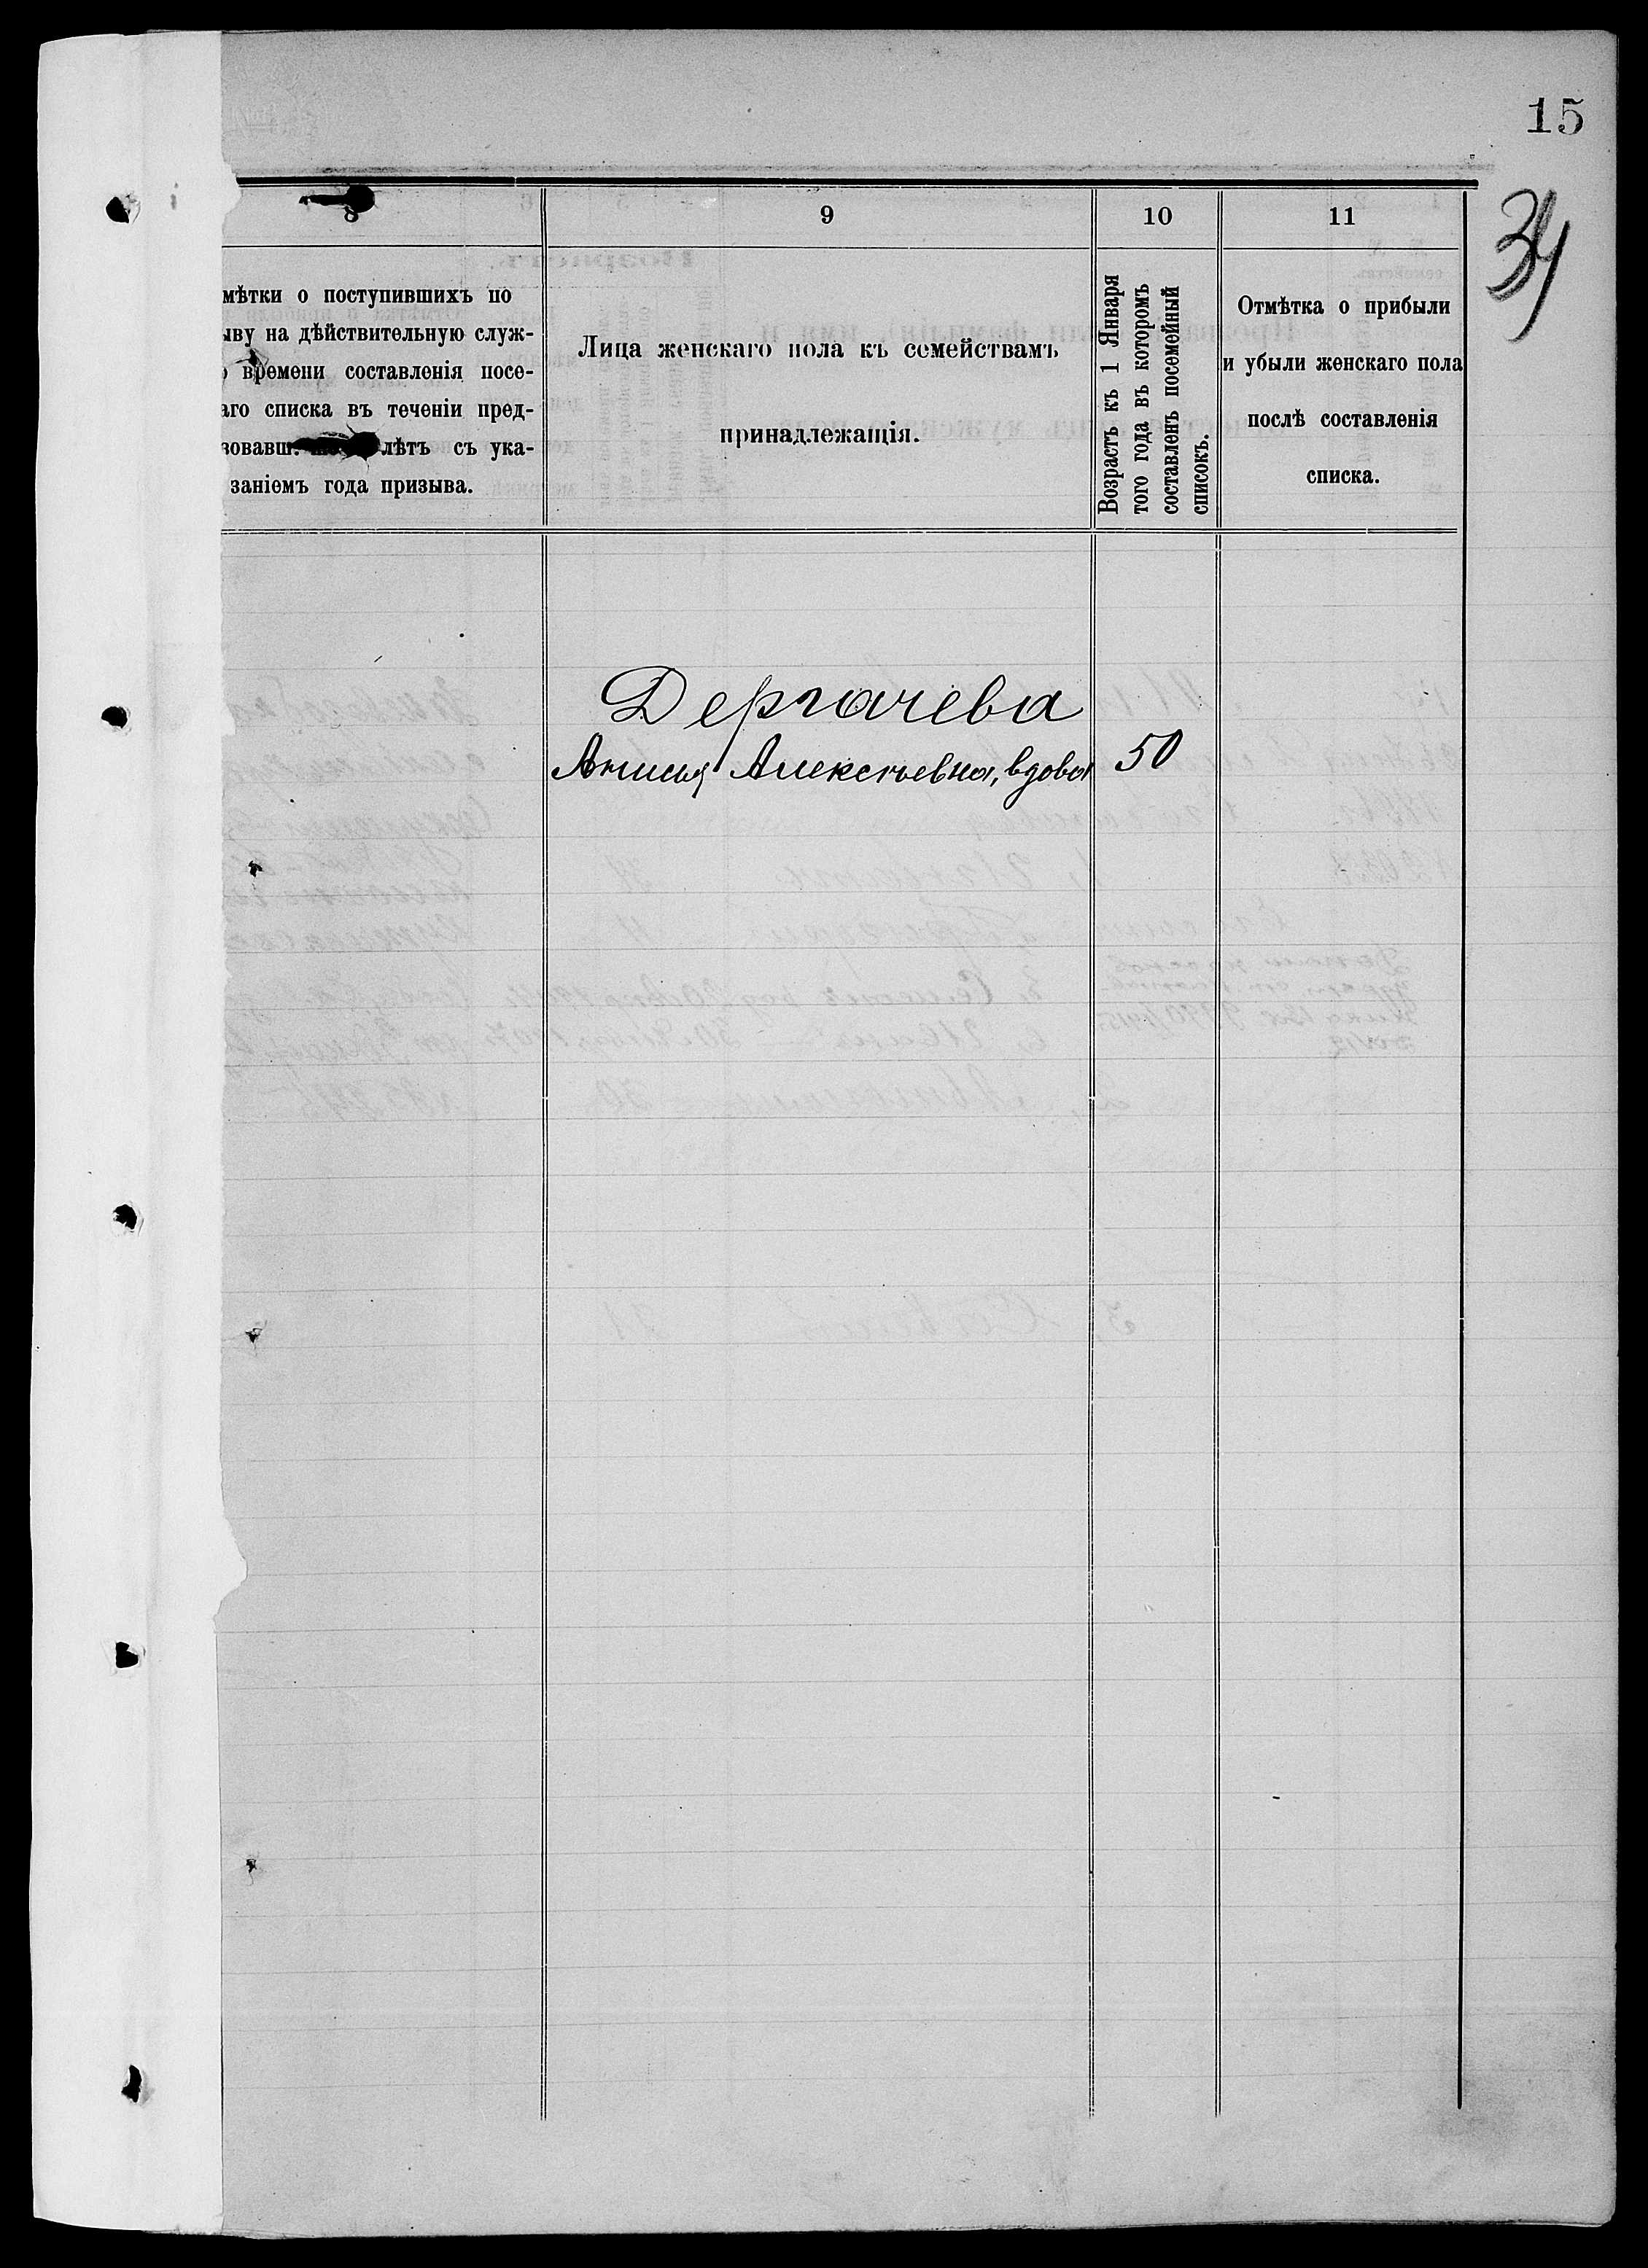 15
34
8
9
10
11
мѣтки о поступившихъ по
ыву на дѣйствительную служ-
времени составленія посе-
аго списка въ теченіи пред-
зовавш. лѣтъ съ ука-
заніемъ года призыва.
Лица женскаго пола къ семействамъ
принадлежащія.
Возрастъ къ 1 Января
того года въ которомъ
составленъ посемейный
списокъ.
Отмѣтка о прибыли
и убыли женскаго пола
послѣ составленія
списка.
Дергачева
Анисья Алексѣевна, вдова 50